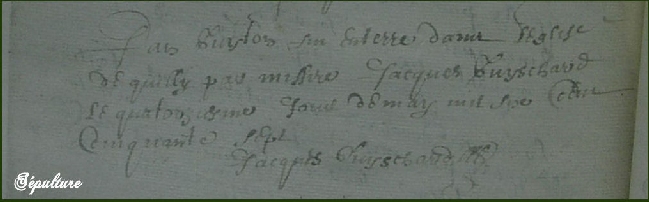 Jan Guiston fut enterré dans l'église
de quilly par missire Jacques Guyschard
Le quatorziesme Jour de may mil six Cent
Cinquante sept
Jacques Guyschard
Sépulture